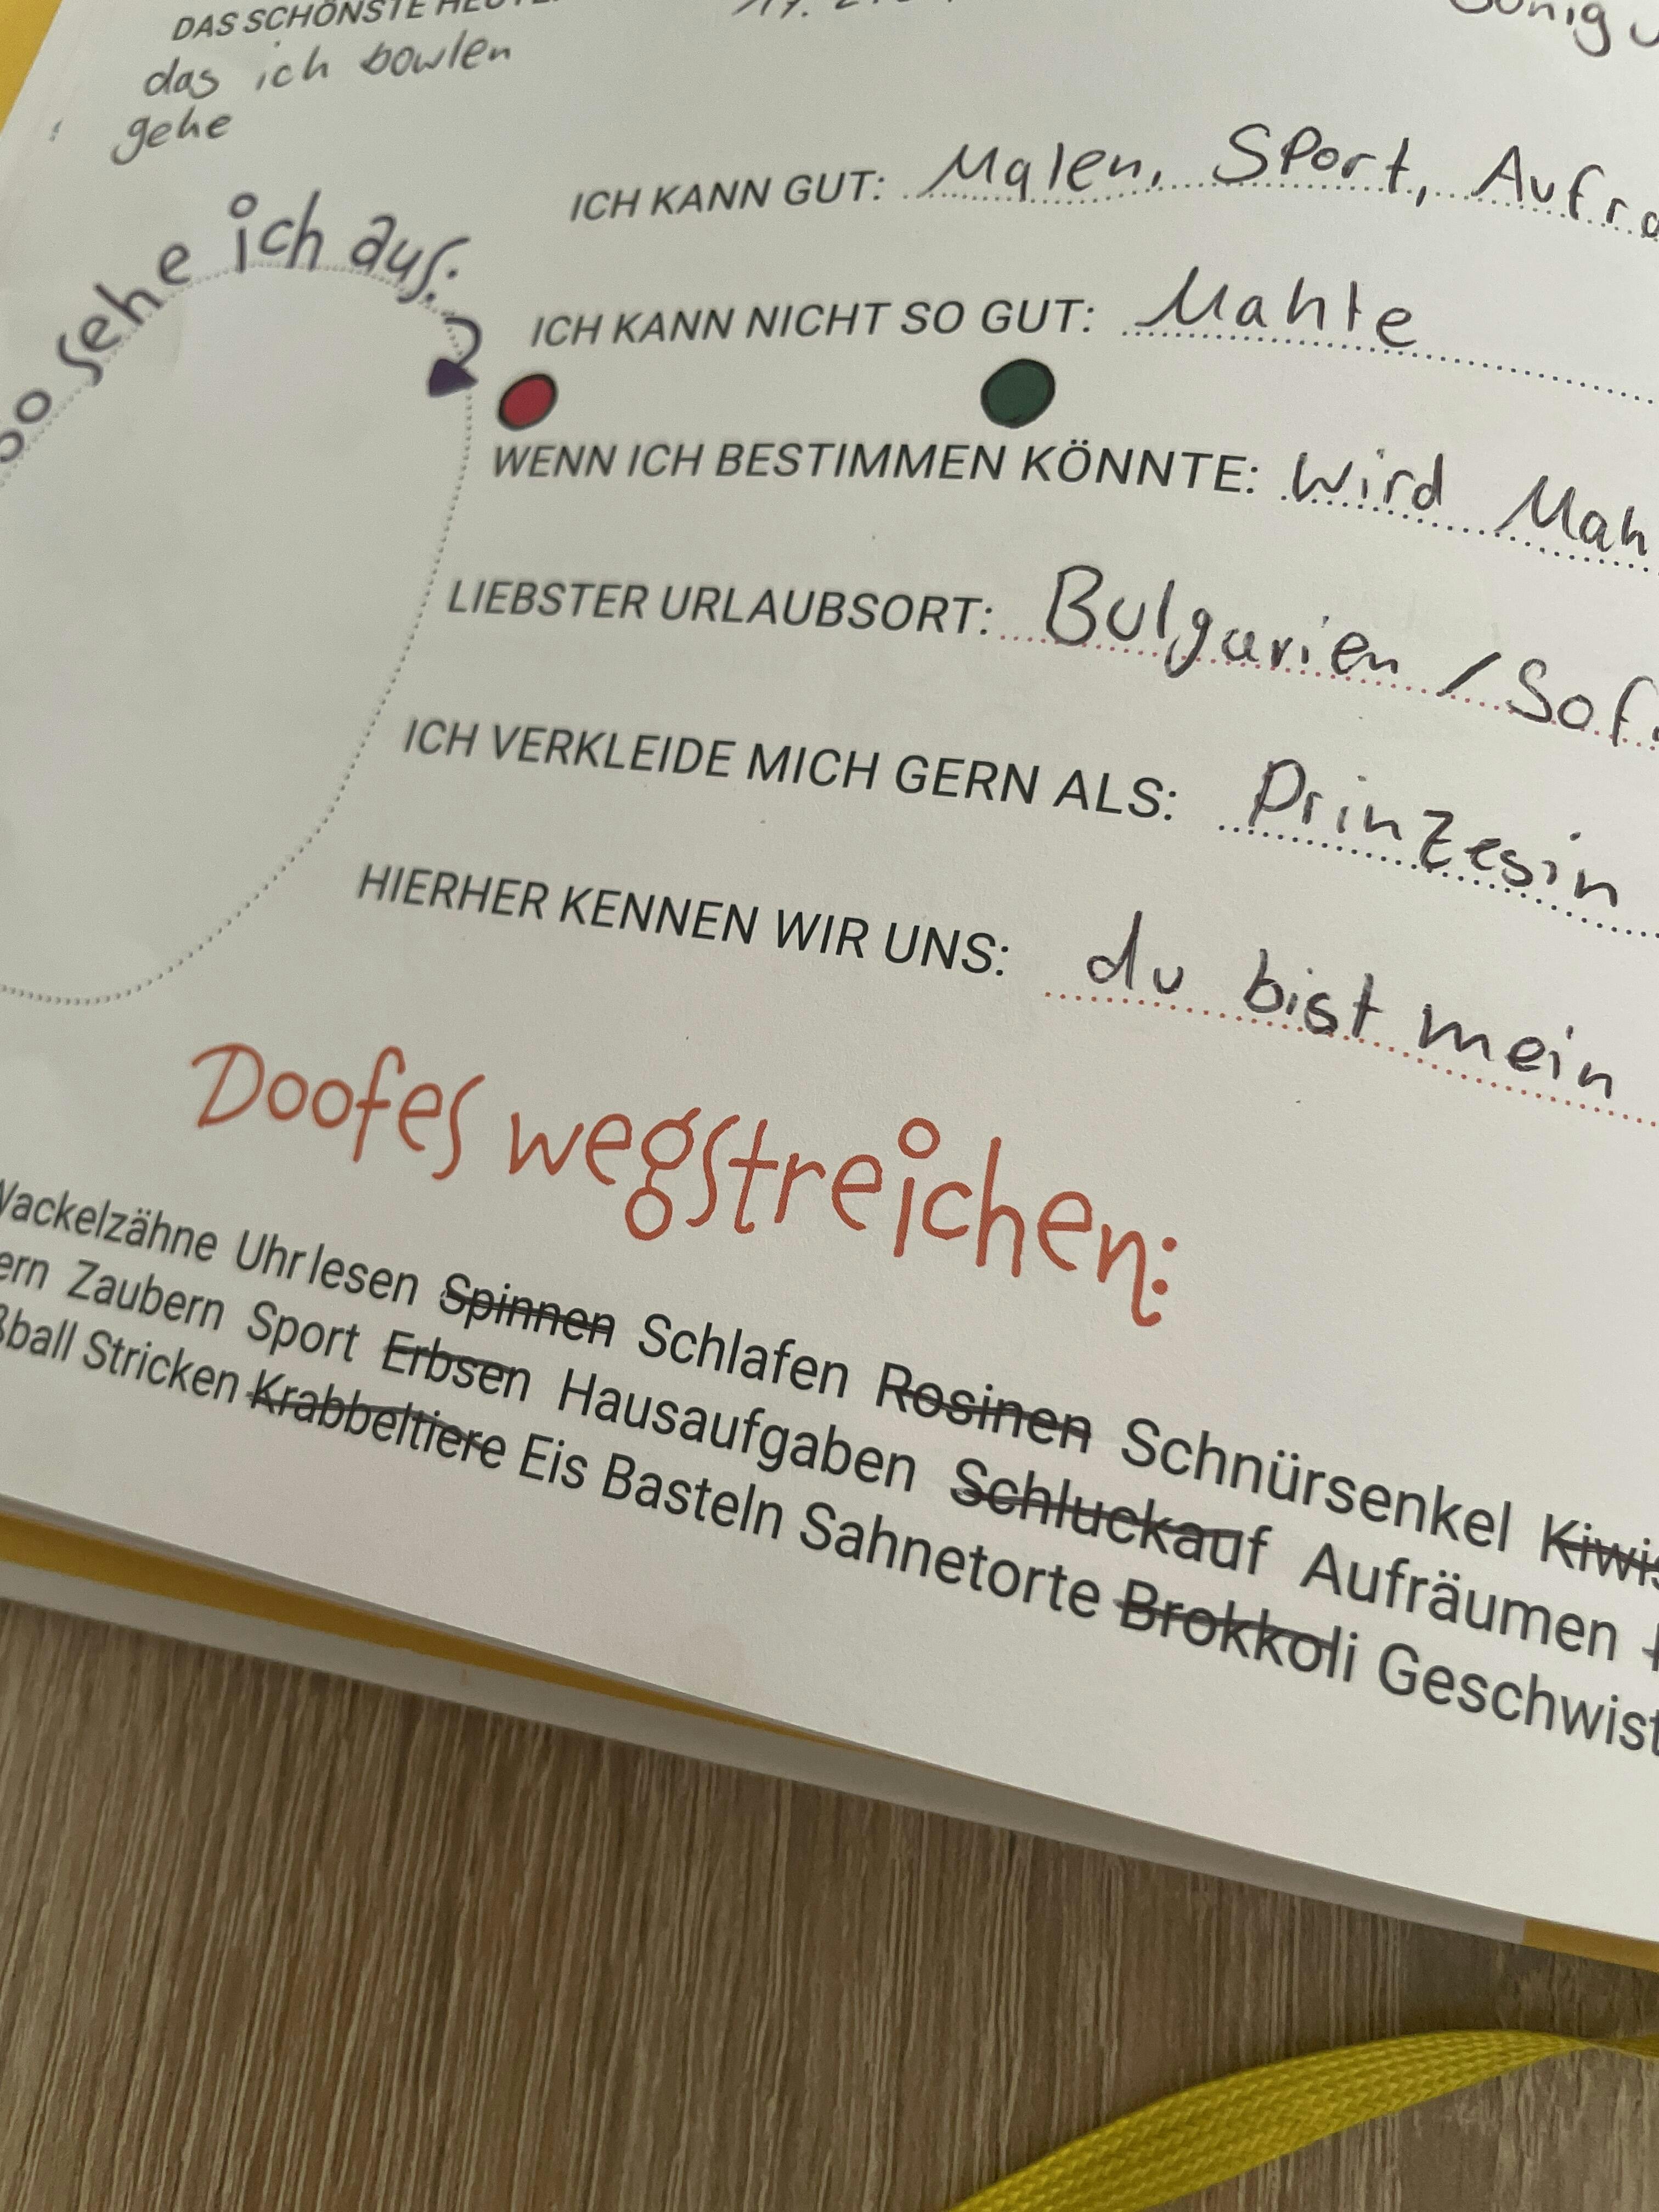 DAS SCHÖNSTE HEUTE:
das ich bowlen
gehe
So sehe ich aus:
ICH KANN GUT: Malen, Sport, Aufra
ICH KANN NICHT SO GUT: Mahte
WENN ICH BESTIMMEN KÖNNTE: Wird Mah
LIEBSTER URLAUBSORT: Bulgarien / Sof
ICH VERKLEIDE MICH GERN ALS: Prinzesin
HIERHER KENNEN WIR UNS: du bist mein
Doofes wegstreichen:
Wackelzähne Uhr lesen Spinnen Schlafen Rosinen Schnürsenkel Kiwis
ern Zaubern Sport Erbsen Hausaufgaben Schluckauf Aufräumen
ßball Stricken Krabbeltiere Eis Basteln Sahnetorte Brokkoli Geschwist